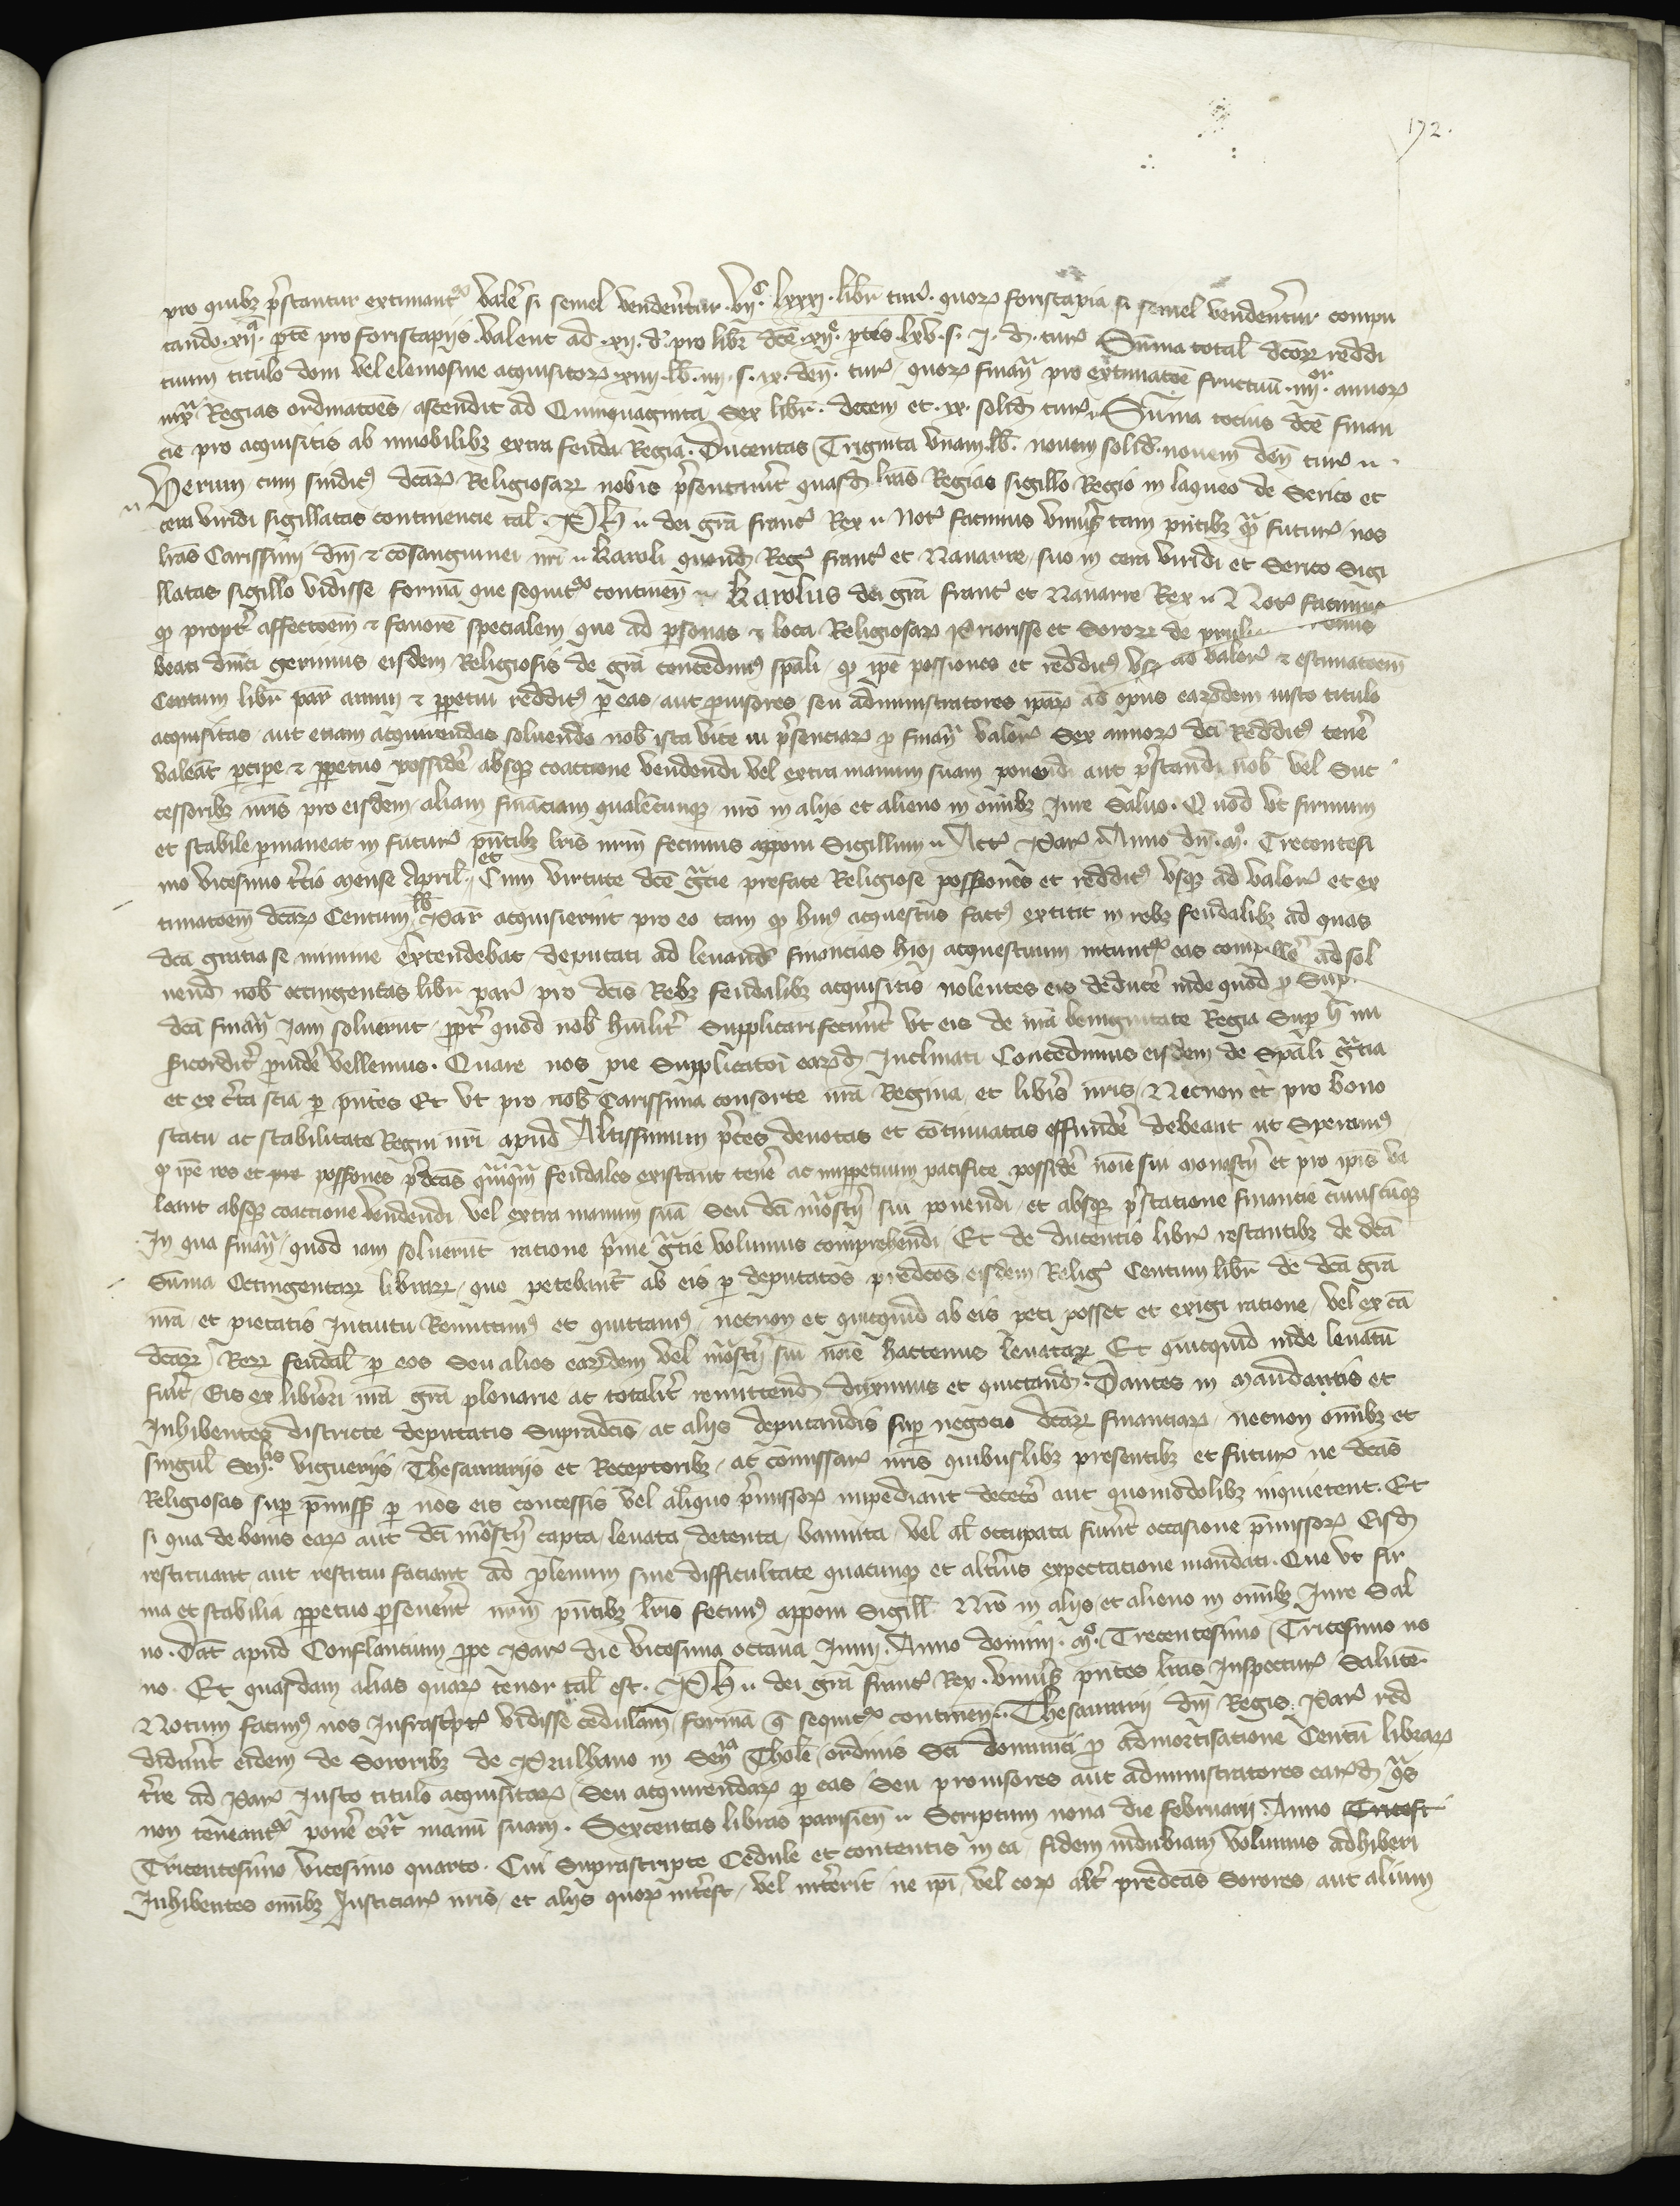 172.
pro quibȝ p̄stantur extimant᷑ valer̄ si semel vendent᷑ur · vijᶜ · lxxxj · libr̄ tur̄ · quoꝝ foriscapia si semel vendent᷑ur compu
tando · xijᵃ · pte pro foriscapijs · valent ad · xij · d̄ · pro libr̄ dc̄e · xijᵉ · ptis · lxv · s · j · d̄ · tur̄ Sūma total dc̄oꝝ reddi
tuum titulo doni vel elemosine acquisitoꝝ xiiij · lb̄ · iiij · s · ix · den̄ · tur̄ / quoꝝ finan̄ pro extimatōe fructuū · iiijᵒʳ · annoꝝ
iux̄ Regias ordinatōes / ascendit ad Quinquaginta Sex libr̄ · decem et · ix · solid̄ tur̄ · Sūma totius dc̄e finan
cie pro acquisitis ab inmobilibȝ extra feuda Regia · Ducentas Triginta vnam lb̄ · novem solid̄ · novem den̄ tur̄ ·
Verum cum sindic̄ dc̄aꝝ Religiosaꝝ nobis p̄sentav̄it quasd̄ lr̄as Regias sigillo Regio in laqueo de Serico et
cera viridi sigillatas continencie tal̄ · Ph̄ · dei gr̄a franc̄ Rex · Not̄ facimus vniūs̄ tam pn̄tibȝ q̄ futur̄ / nos
lr̄as Carissimi dn̄i & cōsanguinei nr̄i · Karoli quond̄ Reḡ franc̄ et Navarre / suo in cera viridi et Serico Sigi
llatas sigillo vidisse formā que sequit᷑ continen̄ · Karolus dei gr̄a franc̄ et Navarre Rex · Not̄ facimus
ꝙ propt̄ affectōem & favorē specialem que ad p̄sonas & loca Religiosaꝝ Priorisse et Soroꝝ de
beati dn̄ici gerimus eisdem Religiosis de gr̄a concedim᷒ spāli / ꝙ ip̄e possiones et reddit᷒ vsꝫ ad valor̄ & estimatōem
Centum libr̄ par̄ annui & ꝑpetui reddit᷒ ꝑ eas / aut ꝓvisores / seu administratores ip̄aꝝ ad opus earūdem iusto titulo
acquisitas / aut etiam acquirendas solvendo nob̄ ista vice in p̄senciarꝝ ꝓ finan̄ valor̄ Sex annoꝝ dc̄i Reddit᷒ tenēr
valeāt pcipe & ꝑpetuo possidēr absqȝ coactione vendendi vel extra manum suam ponendi aut p̄standi nob̄ vel Suc
cessoribȝ nr̄is pro eisdem / aliam financiam qualēcunqȝ nr̄o in alijs et alieno in oīnibȝ Iure Salvo · Quod vt firmum
et stabile ꝑmaneat in futur̄ pn̄tibȝ lr̄is nr̄m fecimus apponi Sigillum · Act̄ Par̄ Anno dn̄i · mᵒ · Trecentesi
mo vicesimo tc̄io mense April̄ · et Cum virtute dc̄e gr̄cie prefate Religiose possiones et reddit᷒ vsqȝ ad valor̄ et ex
timatōem dc̄aꝝ Centum lb̄ Par̄ acquisierint pro eo tam ꝙ hui᷒ acquestus fact᷒ extitit in rebȝ feudalibȝ ad quas
dc̄a gratia se minime extendebat deputati ad levand̄ financias acquestuum eas ad sol
vend̄ nob̄ octingentas libr̄ par̄ pro dc̄is Rebȝ feudalibȝ acquisitis nolentes eis deducēr inde quod ꝓ
dc̄a finan̄ Iam solverūt / ꝓpt̄ quod nob̄ hūilit̄ Supplicari fecer̄ūt vt eis de nr̄a benignitate Regia Sup h̄ mi
sericordit̄ ꝓvidēr vellemus · Quare nos pie Supplicatōi earūd̄ Inclinati Concedimus eisdem de Spāli gr̄cia
et ex c̄ta scīa ꝑ pn̄tes Et vt pro nob̄ Carissima consorte nr̄a Regina / et lib̄is nr̄is / Necnon et pro bono
statu ac stabilitate Regni nr̄i apud Altissimum p̄ces devotas et cōtinuatas effundēr debeant ut Speram᷒
ꝙ ip̄e res et possiones p̄dc̄as feudales existant tenēr ac inꝑpetuum pacifice possidēr noīe sui monastr̄ij et pro ip̄is va
leant absqȝ coactione vendendi vel extra manum suā Seu dc̄i mōastr̄ij sui ponendi / et absqȝ p̄statione financie cuiuscūqȝ
In qua finan̄ / quod iam solverūt racione p̄me gr̄cie volumus comprehendi Et de ducentis libr̄ restantibȝ de dc̄a
Sūma Octingentaꝝ libraꝝ / que petebant᷑ ab eis ꝑ deputatos predc̄os eisdem Reliḡ Centum libr̄ de dc̄a gr̄a
nr̄a / et pietatis Intuitu Remittim᷒ et quittam᷒ / necnon et quicquid ab eis peti posset et exigi ratione / vel ex cā
dc̄aꝝ Reꝝ feudal̄ ꝑ eos Seu alios earūdem vel mōastr̄ij sui noīe hactenus levataꝝ Et quicquid inde levatū
fuer̄it / Eis ex lib̄iori nr̄a gr̄a plenarie ac totalit̄ remittend̄ duximus et quictand̄ · Dantes in mandantis et
Inhibentes districte deputatis Supradc̄is ac alijs deputandis sup negocio dc̄aꝝ financiaꝝ / necnon oīnibȝ et
singul̄ Sen̄ˡⁱˢ viguerijs / Thesaurarijs et Receptoribȝ / ac cōmissar̄ nr̄is quibuslibȝ presentibȝ et futur̄ ne dc̄as
Religiosas sup p̄miss̄ ꝑ nos eis concessis vel aliquo p̄missoꝝ impediant decetero aut quomōdolibȝ inquietent · Et
si qua de bonis eaꝝ aut dc̄i mōastr̄ij capta / levata detenta / bannita / vel al̄ occupata fuer̄it occasione p̄missoꝝ Eisd̄
restituant aut restitui faciant ad plenum sine difficultate quacunqȝ et alt̄ius expectatione mandati · Que vt fir
ma et stabilia ꝑpetuo ꝑsever̄ēt nr̄m pn̄tibȝ lr̄is fecim᷒ apponi Sigill̄ · Nr̄o in alijs et alieno in oīnibȝ Iure Sal
vo · Dat̄ apud Conflancium ꝓpe Par̄ die vicesima octava Iunij Anno domini · mᵒ · Trecentesimo Tricesimo no
no · Et quasdam alias quaꝝ tenor tal̄ est · Ph̄ · dei gr̄a franc̄ Rex · vniv̄s̄ pn̄tes lr̄as Inspectur̄ Salutē
Notum facim᷒ nos Infrascpt̄ vidisse cedulam / formā q̄ sequit᷑ continen̄ · Thesaurarij dn̄i Regis Par̄ red
didūt eidem de Sororibȝ de Prulhano in Sen̄ᵃ Thol̄e / ordinis Sc̄i dominici ꝓ admortisatione Centū libraꝝ
t̄re ad Par̄ Iusto titulo acquisitaꝝ / Seu acquirendaꝝ ꝑ eas / Seu provisores aut administratores earūd̄ q̄s
non teneant᷑ ponēr ext̄ manū suam · Sexcentas libras parisien̄ · Scriptum nona die februarij Anno Tricest
Tricentesimo vicesimo quarto · Cui Suprascripte Cedule et contentis in ea / fidem indubiam volumus adhiberi
Inhibentes oīnibȝ Justiciar̄ nr̄is / et alijs quoꝝ intēst / vel int̄erit / ne ip̄i / vel eoꝝ alt̄ predc̄as Sorores / aut alium